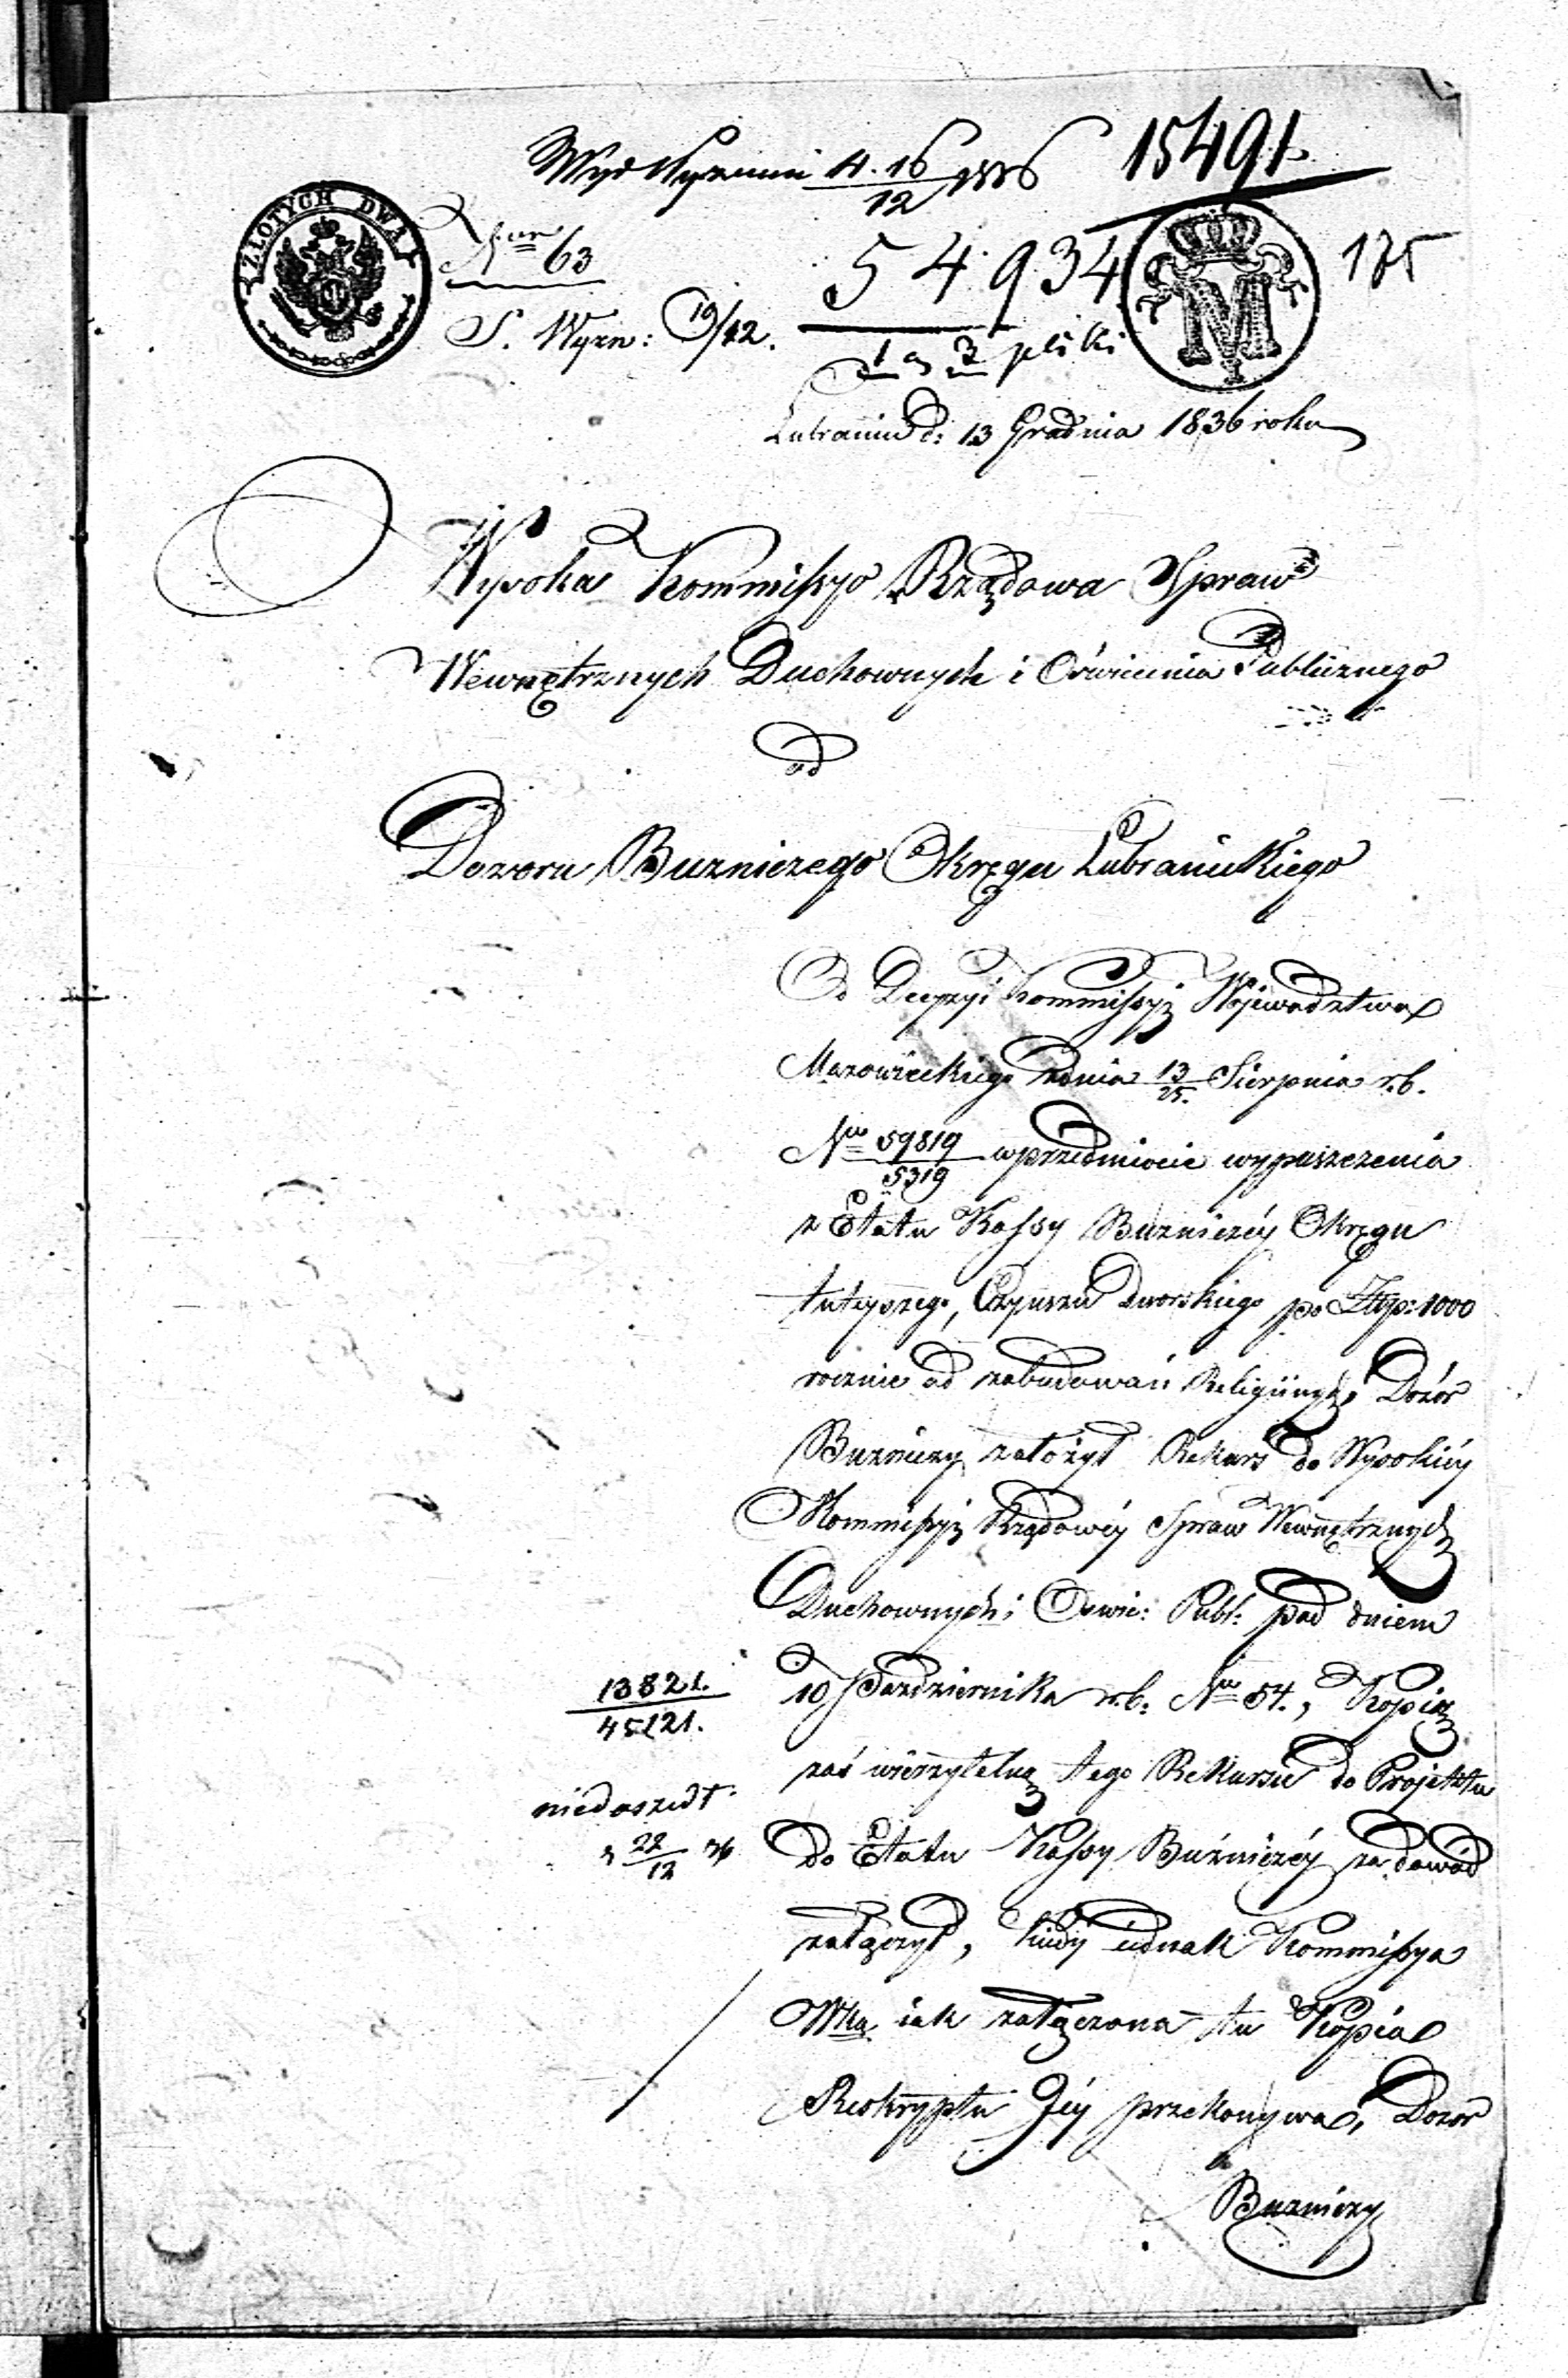 Wyd Wyznań 4.16/12 1836
15491
ZŁOTYCH DWA
Nro 63
54934
175
S. Wyzn: 19/12.
1 a 3 pliki
Lubraniu d: 13 Grudnia 1836 roku
Wysoka Kommissyo Rządowa Spraw
Wewnętrznych Duchownych i Oświecenia Publicznego
od
Dozoru Buzniczego Okręgu Lubranieckiego
Od Decyzyi Kommissyi Województwa
Mazowieckiego z dnia 13/25. Sierpnia r.b.
Nro 59819/5319 w przedmiocie wypuszczenia
z Etatu Kassy Buzniczéy Okręgu
tuteyszego, Czynszu Dworskiego po Złłp: 1000
rocznie od zabudowań Religiinych, Dozór
Buzniczy założył Rekurs do Wysokiéy
Kommissyi Rządowéy Spraw Wewnętrznych
Duchownych i Oświe: Publ: pod dniem
10 Października r.b. Nro 54., Kopią
zaś wierzytelną tego Rekursu do Projektu
do Etatu Kassy Buźniczéy za dowód
załączył, kiedy iednak Kommissya
Wka iak załączona tu Kopia
Reskryptu Jéy przekonywa, Dozór
Buzniczy
13821.
45121.
niedoszedł
d 22/12 36